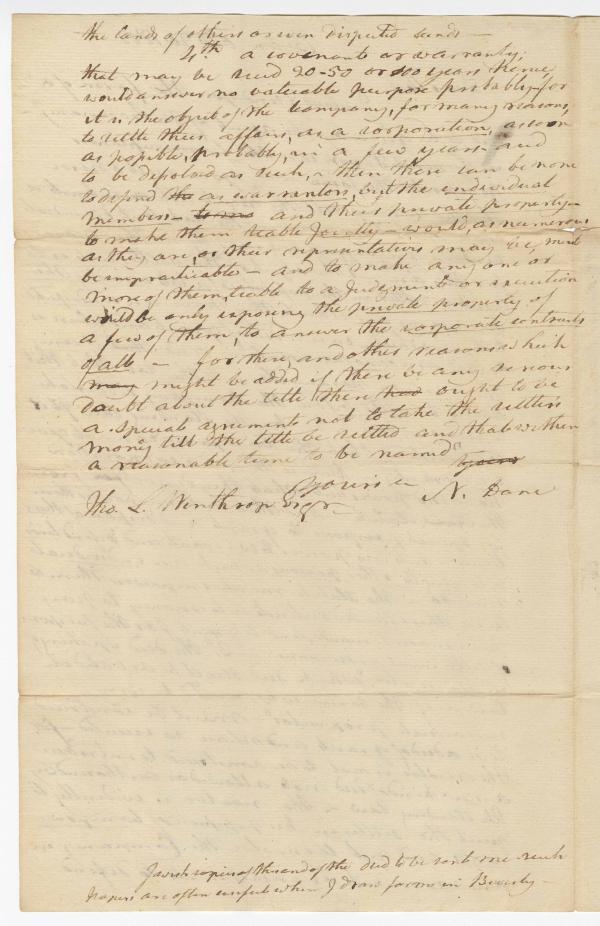 the lands of others or even disputed lands —
4th a covenant or warranty,
that may be sued 20-50 or 100 years hence,
would answer no valuable purpose probably – for
it is the object of the Company, for many reasons,
to settle their affairs, as a corporation, as soon
as possible, probably, in a few years – and
to be dissolved as such, – then there can be none
to defend tho as warrantors, but the individual
members – and their private property –
to make them liable jointly – would, as numerous
as they are, or their representatives may be, must
be impracticable – and to make any one or
more of them liable to a Judgment or execution
would be only exposing the private property of
a few of them, to answer the corporate contracts
of all – for these, and other reasons which
may might be added if there be any serious
Doubt about the title there had ought to be
a special agreement not to take the settlers
money till the title be settled and that within
a reasonable time to be named
yours
Yours &c N. Dane
Tho. L. Winthrop Esqr
I wish copies of this and of the deed to be sent me such
papers are often useful when I draw forms in Beverly –